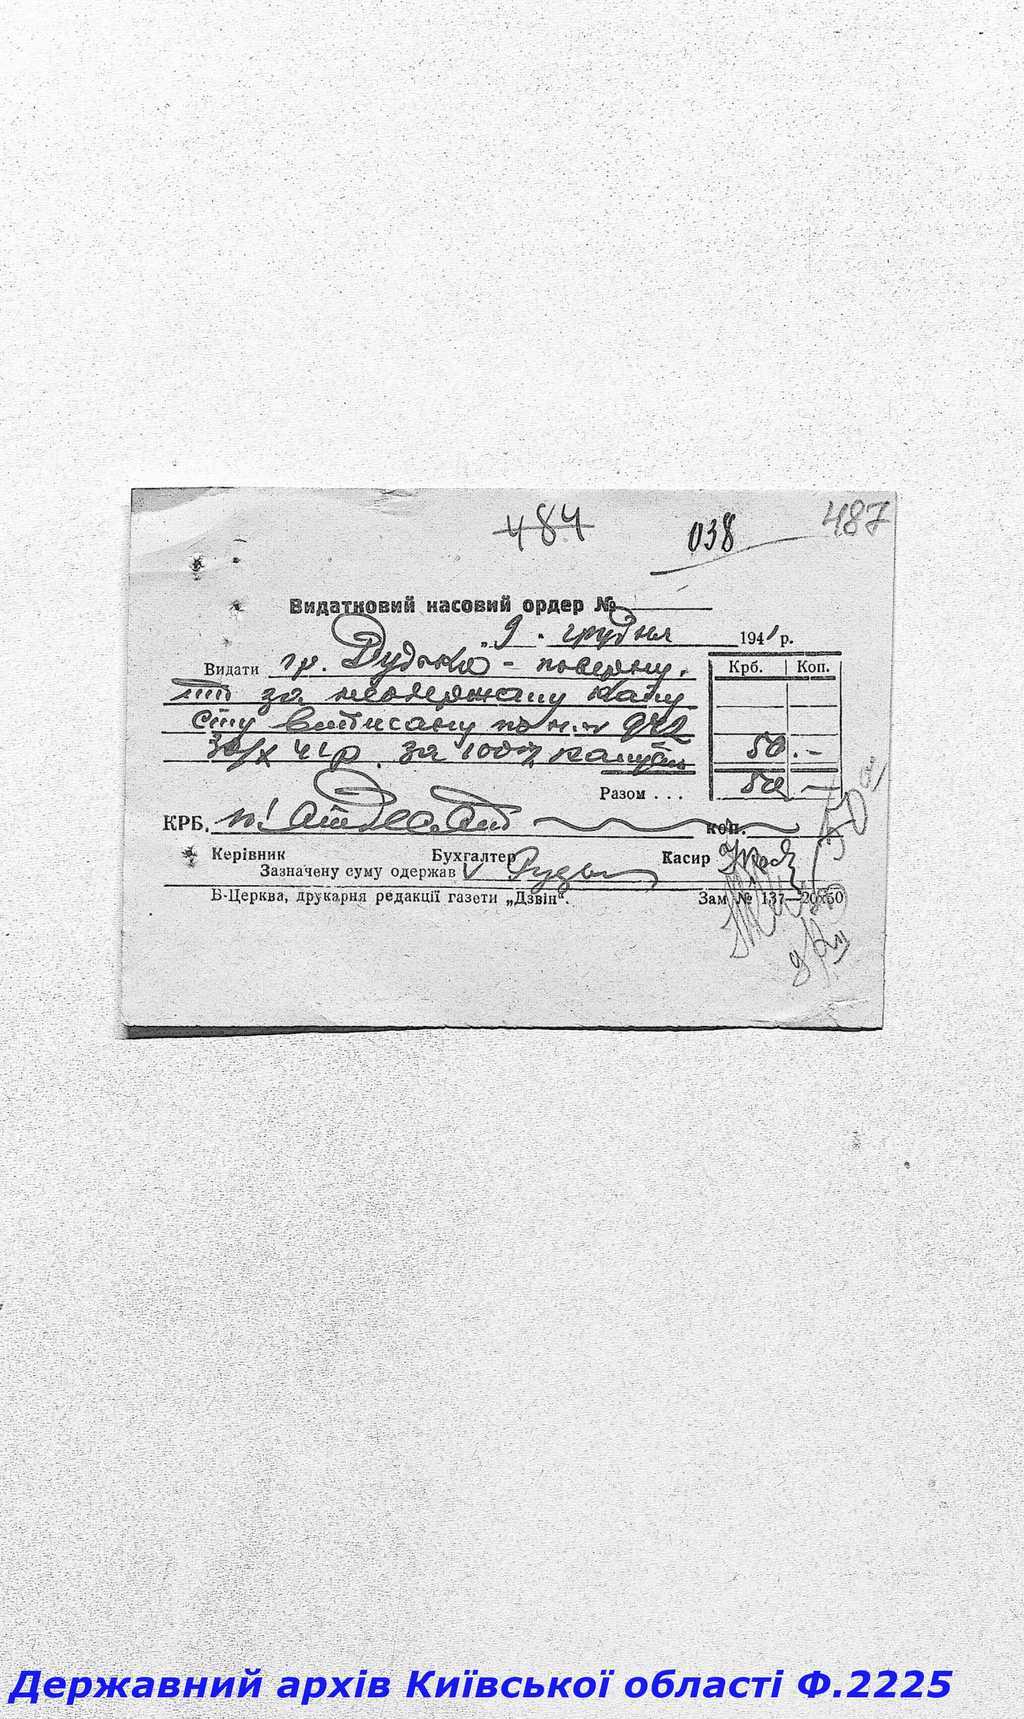 484
038
487
Видатковий касовий ордер №
„ 9 . грудня 1941 р.
Видати гр. Рудько - поверну.
Крб. Коп.
ття за неодержану капу
сту виписану по н.-
30/X 41 р. за 100% капусти
50 . -
Разом . . . 50 -
КРБ. П'ятдесят коп.
Керівник Бухгалтер Касир
Зазначену суму одержав
Б-Церква, друкарня редакції газети „Дзвін“. Зам № 137—20x50
Державний архів Київської області Ф.2225